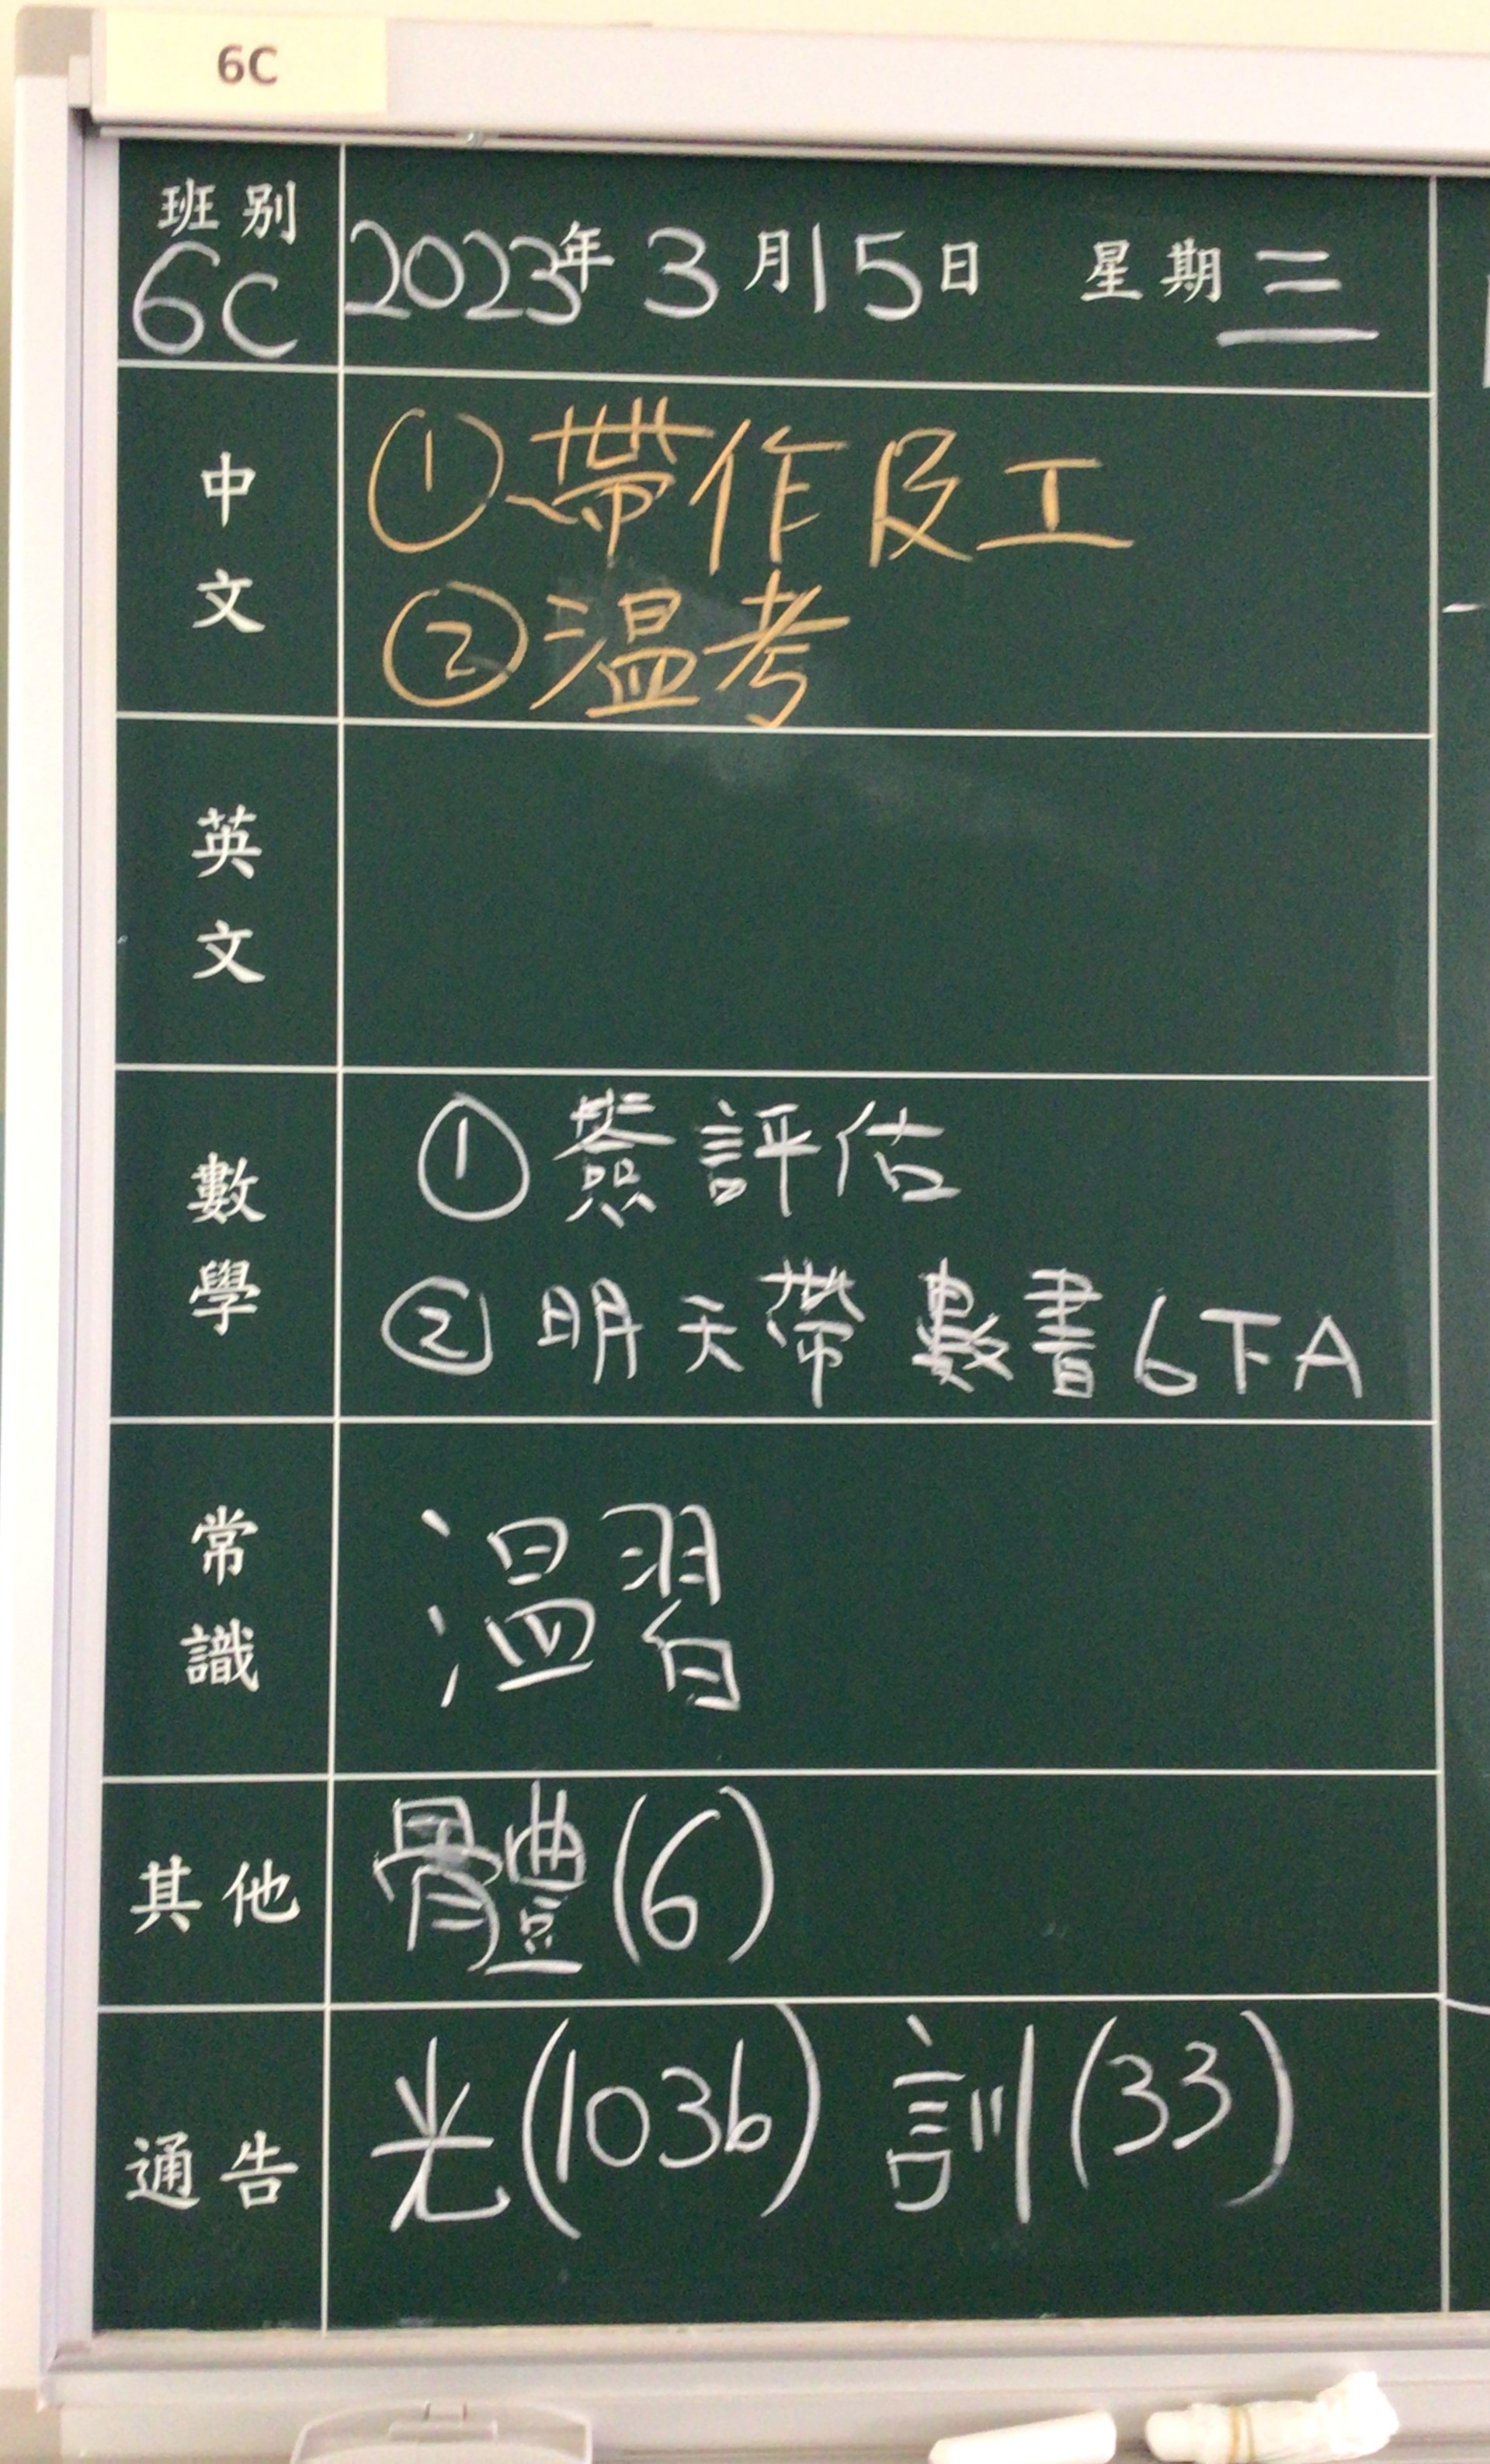 6C
班別
6C
2023年3月15日 星期三
中文
①帶作及工
②溫考
英文
數學
①簽評估
②明天帶數書6下A
常識
溫習
其他
體(6)
通告
光(1036) 訓(33)